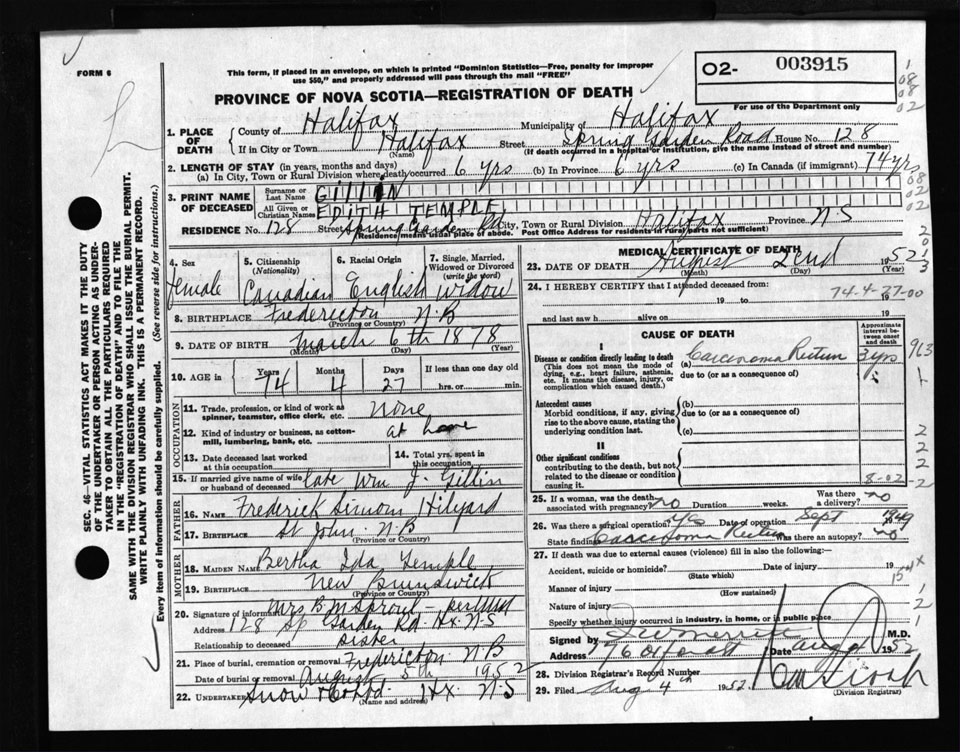 FORM 6
This form, if placed in an envelope, on which is printed "Dominion Statistics—Free, penalty for improper
use $50," and properly addressed will pass through the mail "FREE"
02- 003915
For use of the Department only
PROVINCE OF NOVA SCOTIA—REGISTRATION OF DEATH
1. PLACE OF DEATH
County of Halifax Municipality of Halifax
If in City or Town Halifax Street Spring Garden Road House No. 128
(Name) (If death occurred in a hospital or institution, give the name instead of street and number)
2. LENGTH OF STAY (in years, months and days)
(a) In City, Town or Rural Division where death occurred 6 yrs (b) In Province 6 yrs (c) In Canada (if immigrant) 74 yrs
3. PRINT NAME OF DECEASED
Surname or Last Name GILLIN
All Given or Christian Names EDITH TEMPLE
RESIDENCE No. 128 Street Spring Garden Rd City, Town or Rural Division Halifax Province N.S
(Residence means usual place of abode. Post Office Address for residents of rural parts not sufficient)
4. Sex female
5. Citizenship (Nationality) Canadian
6. Racial Origin English
7. Single, Married, Widowed or Divorced (write the word) Widow
8. BIRTHPLACE Fredericton N.B
(Province or Country)
9. DATE OF BIRTH March 6th 1878
(Month) (Day) (Year)
10. AGE in Years 74 Months 4 Days 27 If less than one day old
hrs. or min.
OCCUPATION
11. Trade, profession, or kind of work as spinner, teamster, office clerk, etc. none
12. Kind of industry or business, as cotton-mill, lumbering, bank, etc. at home
13. Date deceased last worked at this occupation
14. Total yrs. spent in this occupation
15. If married give name of wife or husband of deceased late Wm J. Gillin
FATHER
16. NAME Frederick Simon Hilyard
17. BIRTHPLACE St John N.B
(Province or Country)
MOTHER
18. MAIDEN NAME Bertha Ida Temple
19. BIRTHPLACE New Brunswick
(Province or Country)
20. Signature of informant Mrs B M Sproul
Address 128 Sp Garden Rd. Hx. N.S
Relationship to deceased sister
21. Place of burial, cremation or removal Fredericton N.B
Date of burial or removal August 5th 1952
22. Undertaker Snow & Co Ltd. Hx. N.S
(Name and address)
MEDICAL CERTIFICATE OF DEATH
23. DATE OF DEATH August 2nd 1952
(Month) (Day) (Year)
24. I HEREBY CERTIFY that I attended deceased from:
19 to 19
74-4-27-00
and last saw h alive on 19
CAUSE OF DEATH
Approximate interval between onset and death
I
Disease or condition directly leading to death (a) Carcinoma Rectum 3 yrs
(This does not mean the mode of dying, e.g., heart failure, asthenia, etc. It means the disease, injury, or complication which caused death.)
due to (or as a consequence of)
Antecedent causes
Morbid conditions, if any, giving rise to the above cause, stating the underlying condition last.
(b)
due to (or as a consequence of)
(c)
II
Other significant conditions
contributing to the death, but not related to the disease or condition causing it.
8-02-2
25. If a woman, was the death associated with pregnancy? no Duration weeks. Was there a delivery? no
26. Was there a surgical operation? yes Date of operation Sept 1949
State findings Carcinoma Rectum Was there an autopsy? no
27. If death was due to external causes (violence) fill in also the following:—
Accident, suicide or homicide? Date of injury 19
(State which)
Manner of injury
(How sustained)
Nature of injury
Specify whether injury occurred in industry, in home, or in public place
Signed by M.D.
Address Date 1952
28. Division Registrar's Record Number
29. Filed Aug 4th 1952
(Division Registrar)
SEC. 46—VITAL STATISTICS ACT MAKES IT THE DUTY
OF THE UNDERTAKER OR PERSON ACTING AS UNDER-
TAKER TO OBTAIN ALL THE PARTICULARS REQUIRED
IN THE "REGISTRATION OF DEATH" AND TO FILE THE
SAME WITH THE DIVISION REGISTRAR WHO SHALL ISSUE THE BURIAL PERMIT.
WRITE PLAINLY WITH UNFADING INK. THIS IS A PERMANENT RECORD.
Every item of information should be carefully supplied. (See reverse side for instructions.)
963